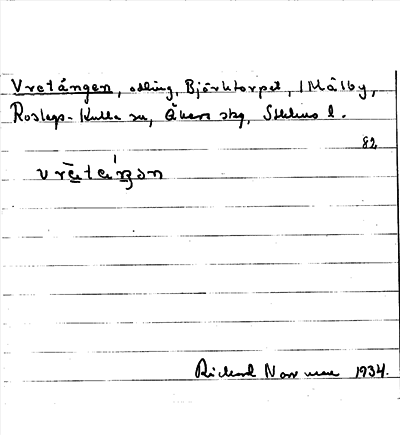 Vretängen, odling, Björktorpet, 1 Målby,
Roslags-Kulla sn, Åkers skg, Sthlms l.
82
vrètáŋən
Rickard Norrman 1934.